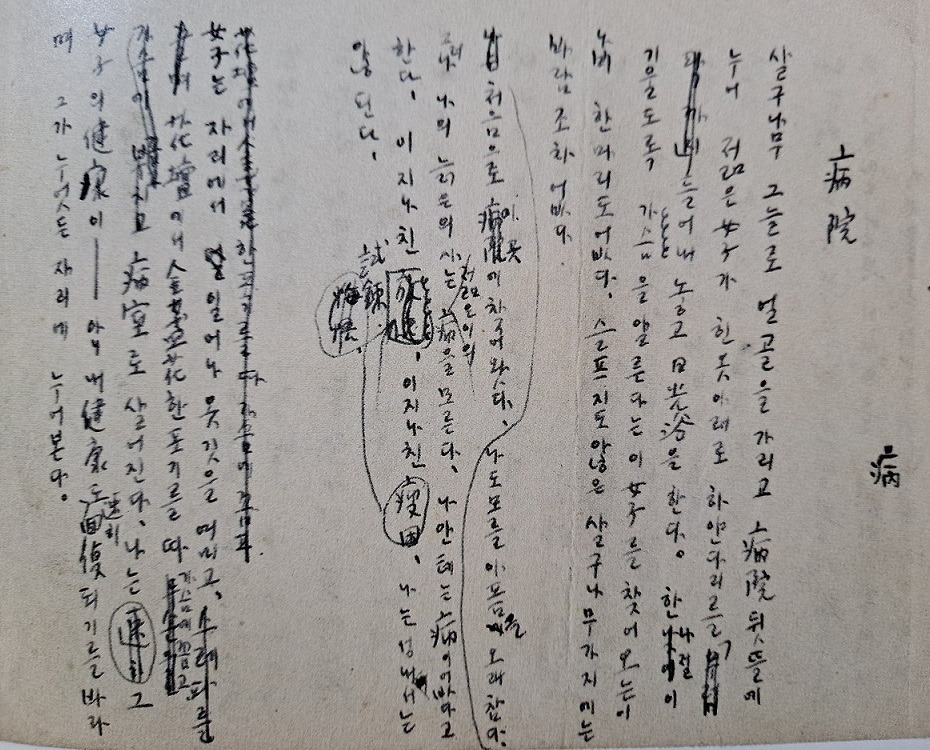 病
病院
살구나무 그늘로 얼골을 가리고 病院뒷뜰에
누어 젊은 女子가 힌옷아래로 하얀다리를
들어내 놓고 日光浴을 한다. 한나절이
기울도록 가슴을 알른다는 이 女子를 찾어 오는이
나비 한마리도 없다. 슬프지도않은 살구나무가지에는
바람조차 없다.
처음으로 이곳에 찾어왔다. 나도모를 아픔을 오래참다.
그러나 나의 늙은의사는 젊은이의 病을모른다. 나안테는 病이없다고
한다. 이 지나친 試鍊, 이지나친 疲勞, 나는성내서는
않된다.
女子는 자리에서 일어나 옷깃을 여미고,
花壇에서 金盞花 한포기를 따 가슴에꼽고
病室로 살어진다. 나는 그
女子의 健康이―― 아니 내 健康도 速히 回復되기를 바라
며 그가 누엇든 자리에 누어본다.